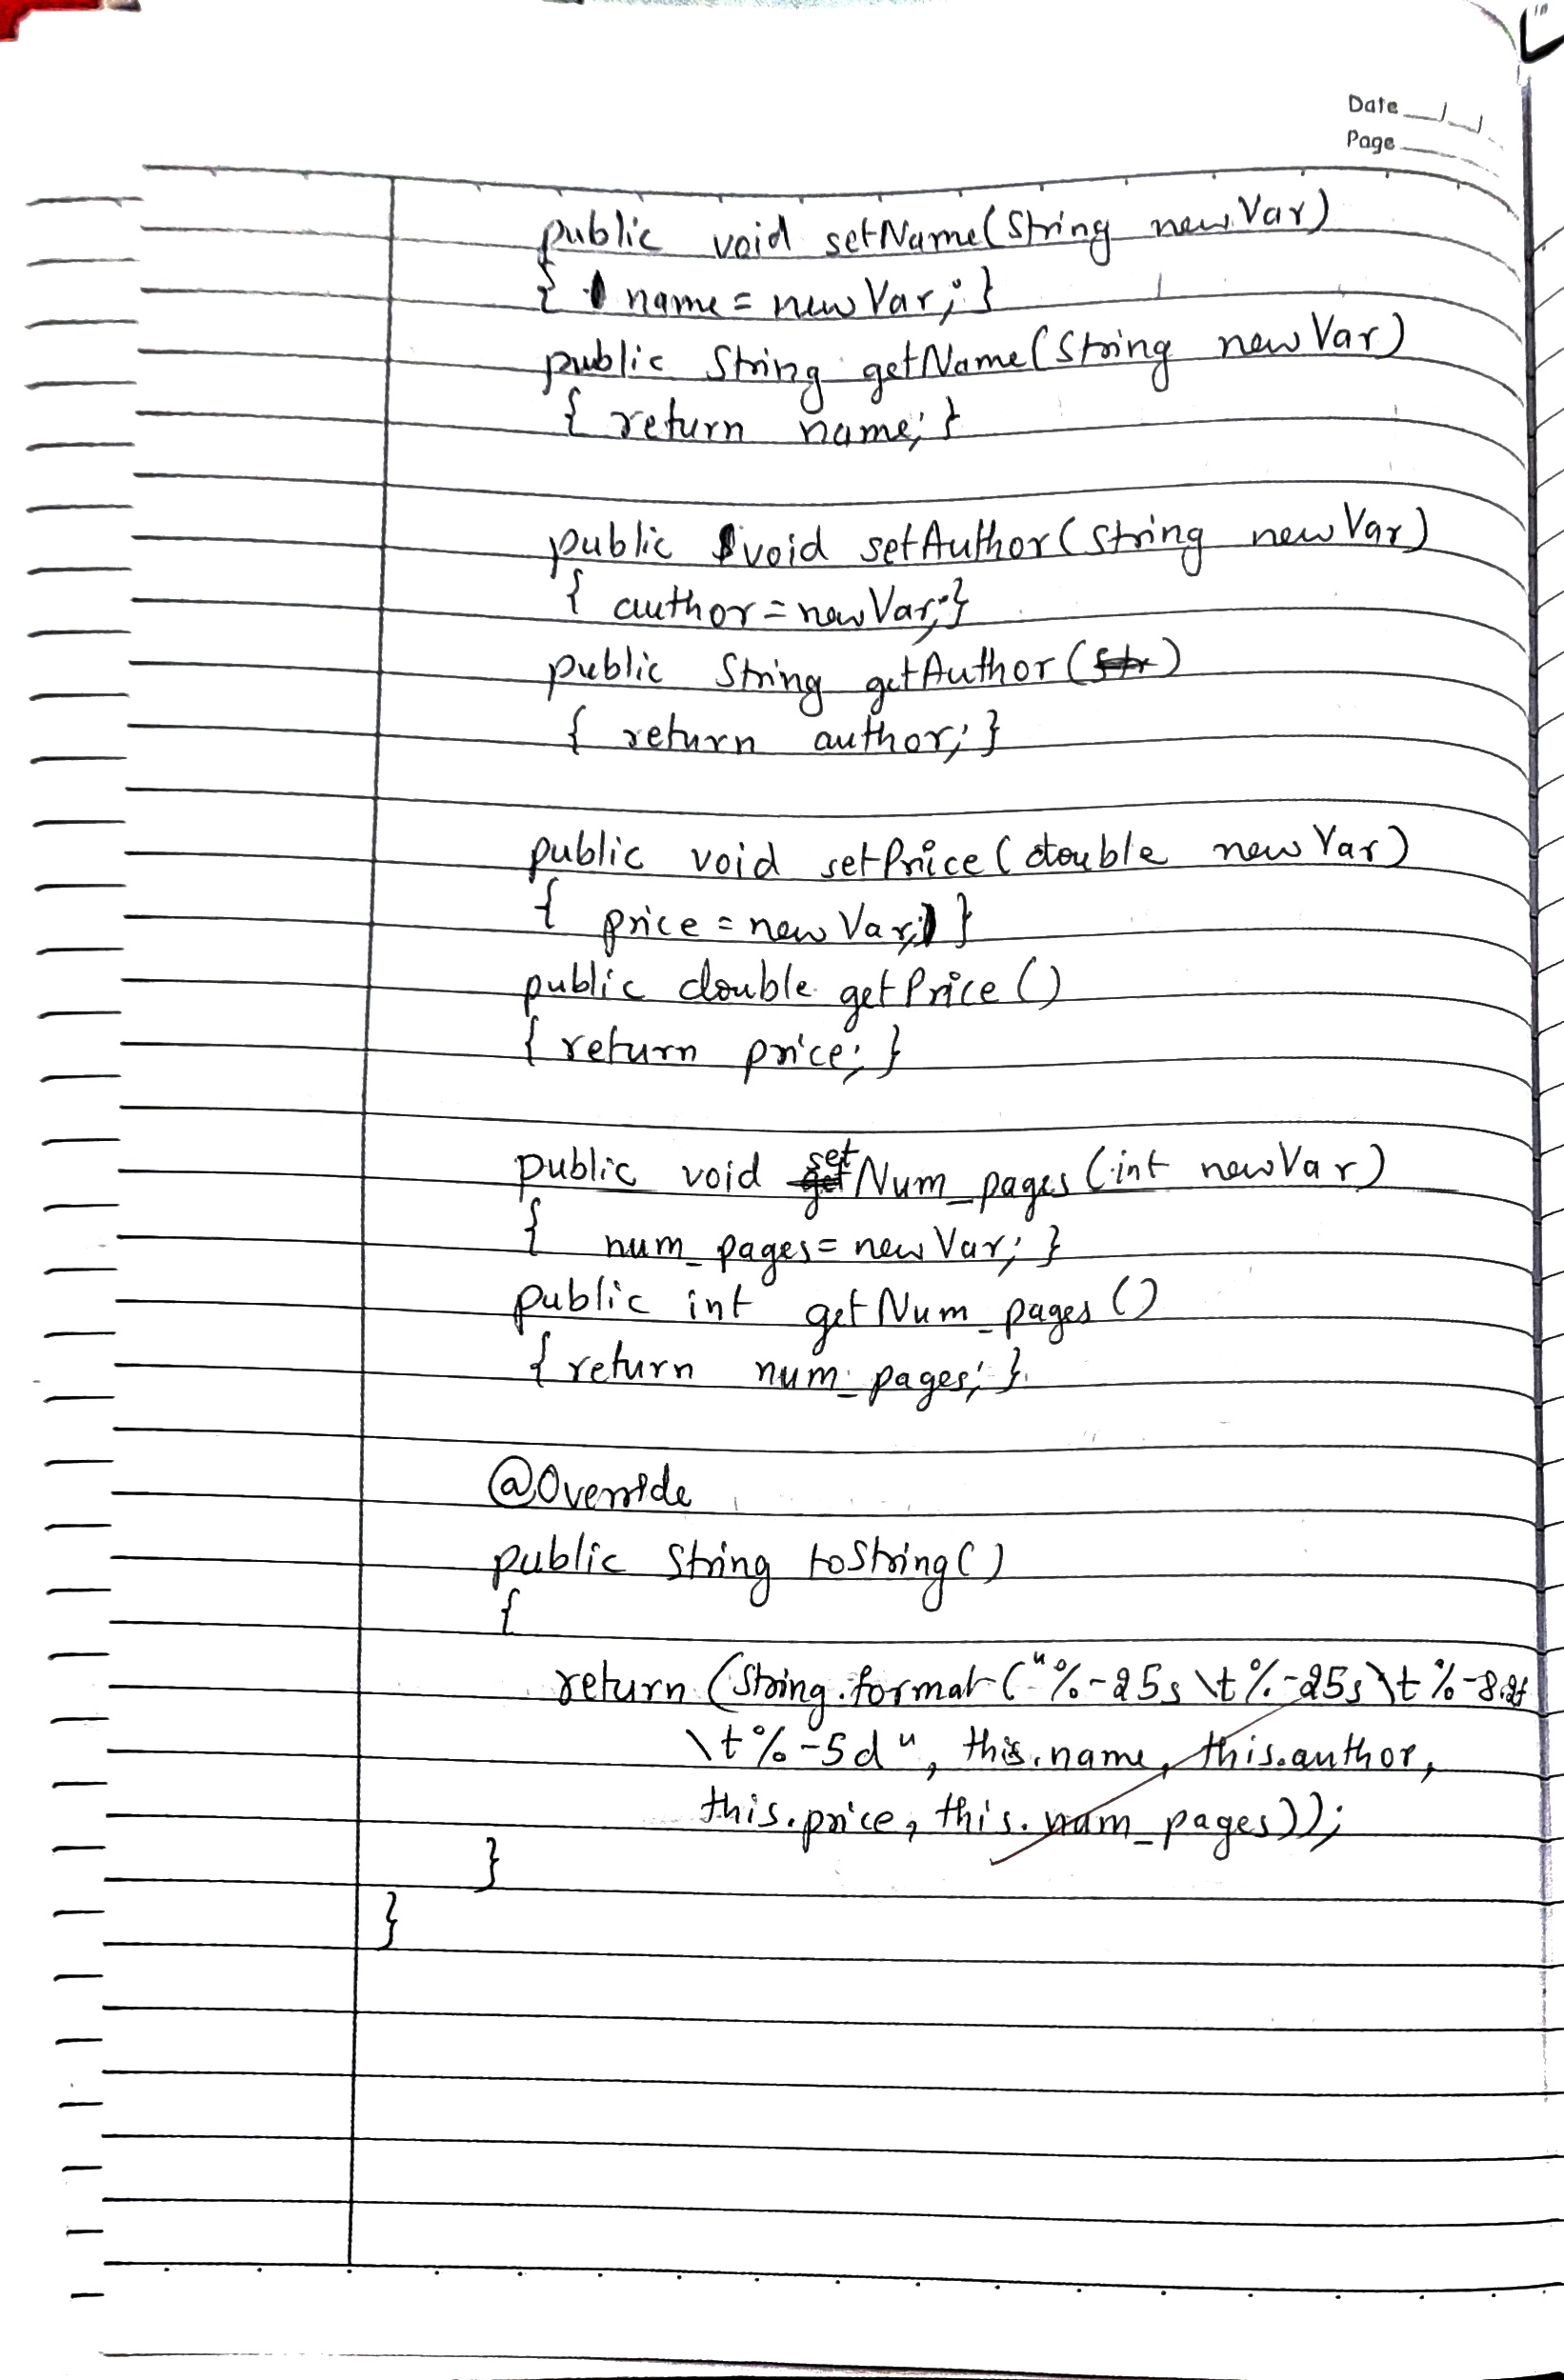 Date
Page
public void setName(String newVar)
{ name = newVar; }
public String getName(String newVar)
{ return name; }
public void setAuthor(String newVar)
{ author = newVar; }
public String getAuthor()
{ return author; }
public void setPrice(double newVar)
{ price = newVar; }
public double getPrice()
{ return price; }
public void setNum_pages(int newVar)
{ num_pages = newVar; }
public int getNum_pages()
{ return num_pages; }
@Override
public String toString()
{
return (String.format("%-25s\t%-25s\t%-8.2f
\t%-5d", this.name, this.author,
this.price, this.num_pages));
}
}